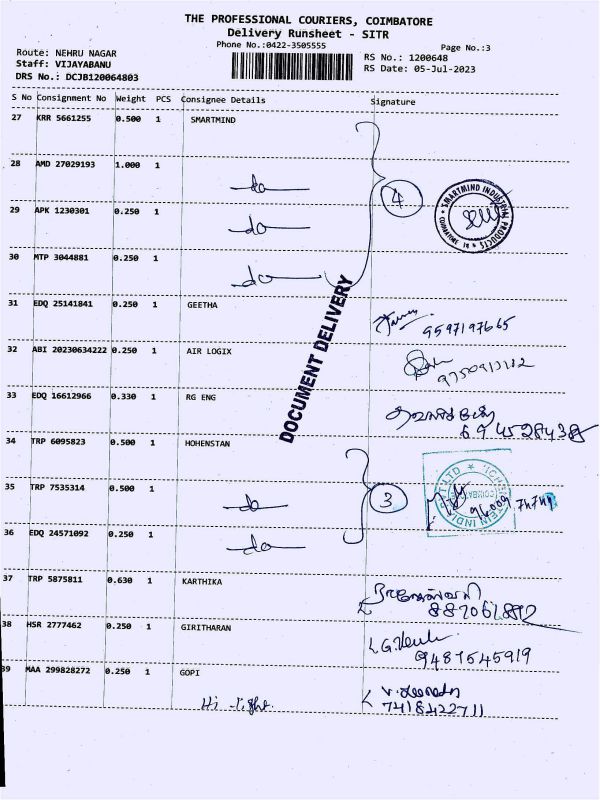 THE PROFESSIONAL COURIERS, COIMBATORE
Delivery Runsheet - SITR
Phone No.:0422-3505555
Page No.:3
Route: NEHRU NAGAR
RS No.: 1200648
Staff: VIJAYABANU
RS Date: 05-Jul-2023
DRS No.: DCJB120064803
S No Consignment No Weight PCS Consignee Details Signature
27 KRR 5661255 0.500 1 SMARTMIND
28 AMD 27029193 1.000 1
do
4
SMARTMIND INDUSTRIAL PRODUCTS
29 APK 1230301 0.250 1
do
30 MTP 3044881 0.250 1
do
DOCUMENT DELIVERY
31 EDQ 25141841 0.250 1 GEETHA
9597197665
32 ABI 20230634222 0.250 1 AIR LOGIX
33 EDQ 16612966 0.330 1 RG ENG
34 TRP 6095823 0.500 1 HOHENSTAN
35 TRP 7535314 0.500 1
do
3
36 EDQ 24571092 0.250 1
do
37 TRP 5875811 0.630 1 KARTHIKA
38 HSR 2777462 0.250 1 GIRITHARAN
9487545919
39 MAA 299828272 0.250 1 GOPI
7418422711